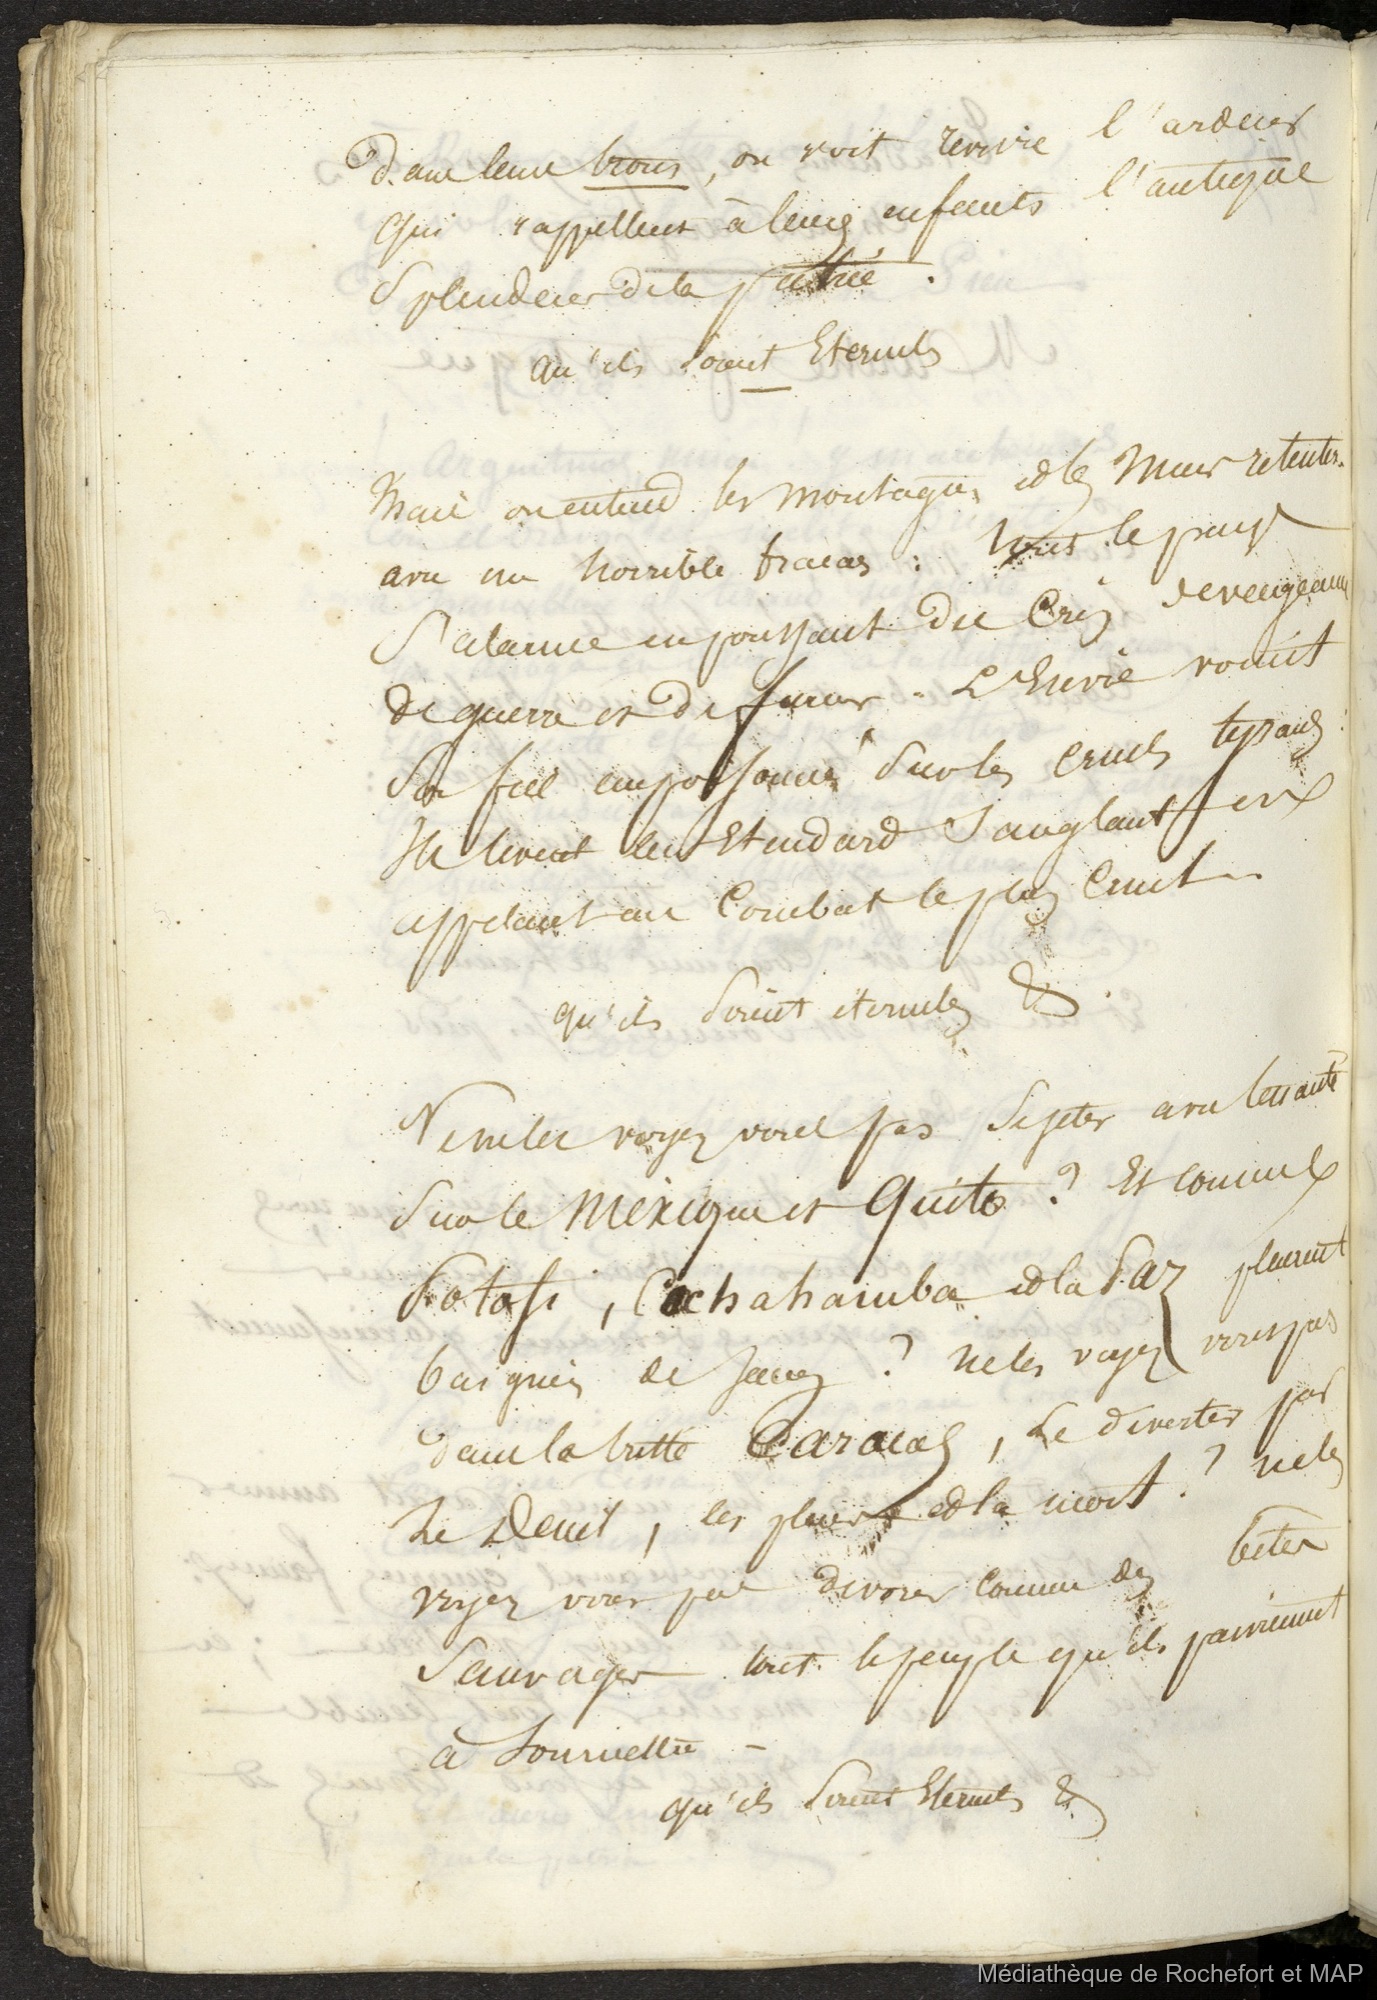 Dans leurs trous, on voit revivre l'ardeur
qui rappellent à leurs enfants l'antique
Splendeur de la patrie.
qu'ils soient Eternels
Mais on entend les montagnes et les Murs retentir
avec un horrible fracas : tout le pays
S'alarme en poussant des Cris de vengeance
de guerre et de fureur. L'Envie vomit
Son fiel empoisonné Sur les cruels tyrans
Ils lèvent leur Etendard Sanglant en
appelant au Combat le plus Cruel.
qu'ils soient éternels &
Ne les voyez vous pas Se jeter avec
Sur le Méxique et Quito ? Et comme
Potosi, Cochahamba et la Paz pleurent
baignées de sang ? ne les voyez vous pas
dans la triste Caracas, se diverter par
Le Deuil, les pleurs et la mort ? ne les
voyez vous pas dévorer comme des bêtes
Sauvages tout le peuple qu'ils parviennent
à Soumettre -
qu'ils soient Eternels &
Médiathèque de Rochefort et MAP